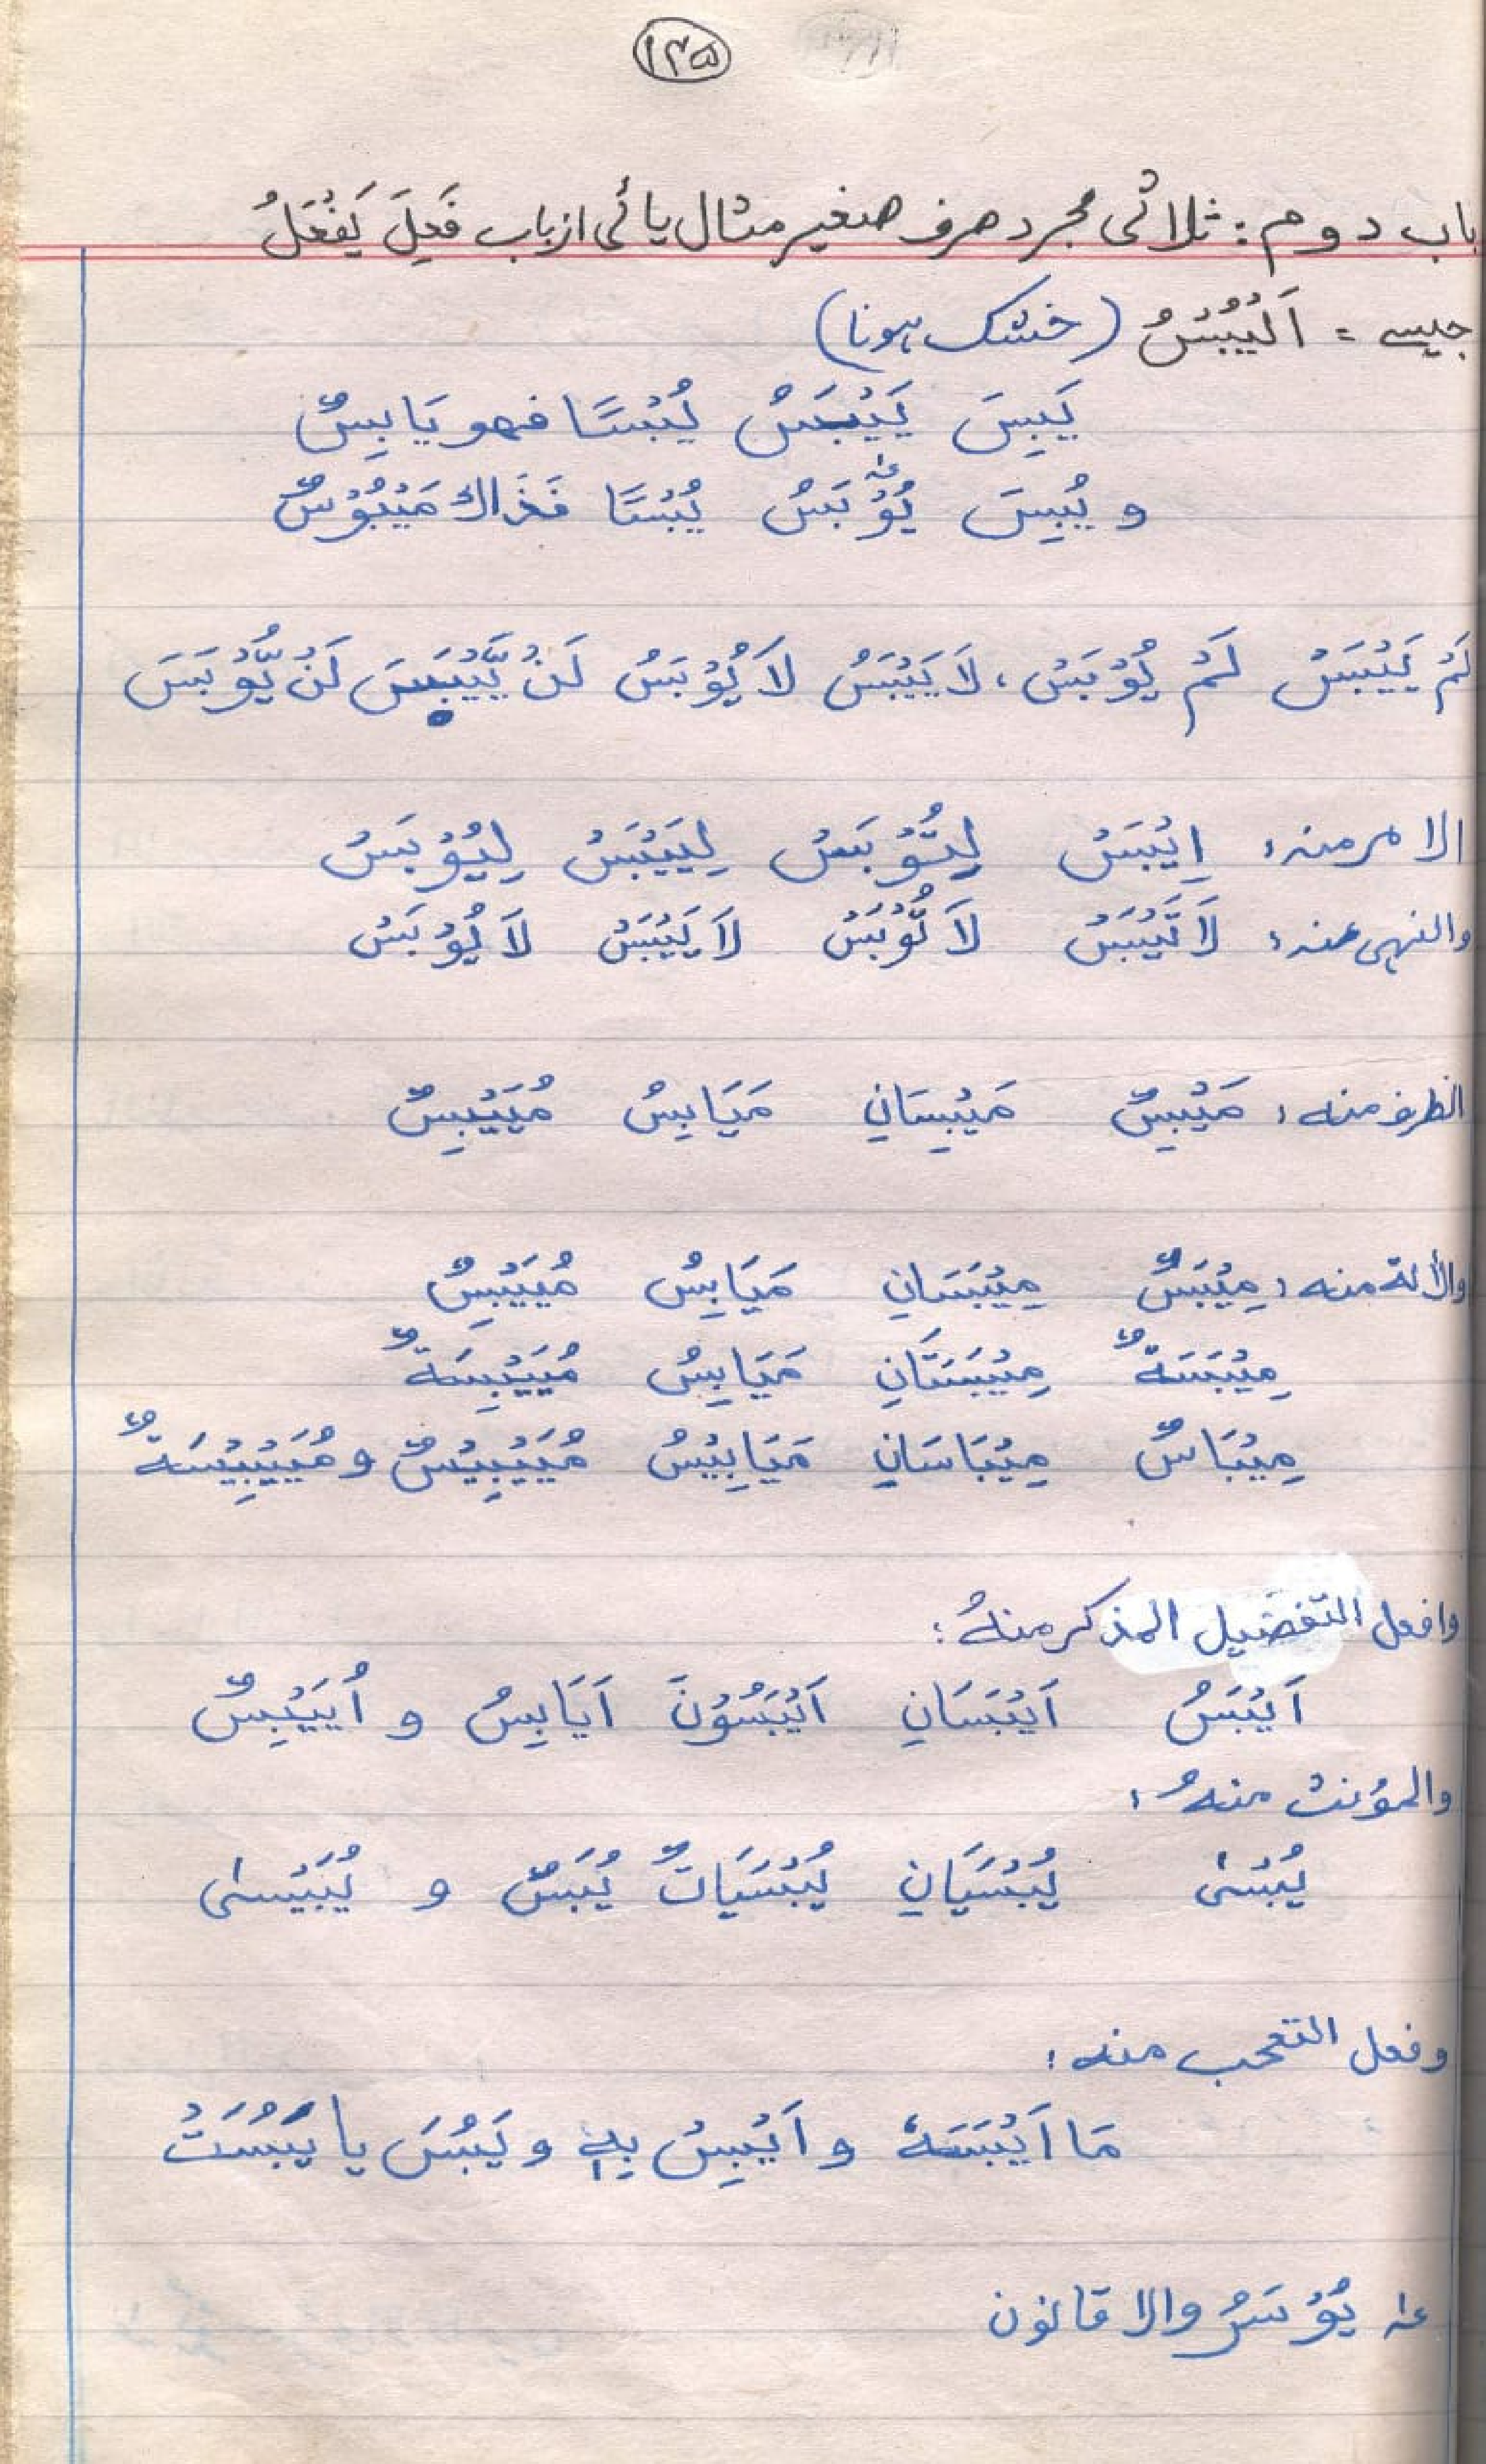 ۱۳۵
باب دوم: ثلاثی مجرد صرف صغیر مثال یائی از باب فَعِلَ یَفْعَلُ
جیسے = اَلْیُبْسُ (خشک ہونا)
یَبِسَ یَیْبَسُ یُبْسًا فهو یَابِسٌ
و یُبِسَ یُوْبَسُ یُبْسًا فَذَاكَ مَیْبُوْسٌ
لَمْ یَیْبَسْ لَمْ یُوْبَسْ، لَا یَیْبَسُ لَا یُوْبَسُ لَنْ یَّیْبَسَ لَنْ یُّوْبَسَ
الامر منه: اِیْبَسْ لِتُوْبَسْ لِیَیْبَسْ لِیُوْبَسْ
والنهی عنه: لَا تَیْبَسْ لَا تُوْبَسْ لَا یَیْبَسْ لَا یُوْبَسْ
الظرف منه: مَیْبِسٌ مَیْبِسَانِ مَیَابِسُ مُیَیْبِسٌ
والألة منه: مِیْبَسٌ مِیْبَسَانِ مَیَابِسُ مُیَیْبِسٌ
مِیْبَسَةٌ مِیْبَسَتَانِ مَیَابِسُ مُیَیْبِسَةٌ
مِیْبَاسٌ مِیْبَاسَانِ مَیَابِیْسُ مُیَیْبِیْسٌ و مُیَیْبِیْسَةٌ
وافعل التفضیل المذکر منهُ:
اَیْبَسُ اَیْبَسَانِ اَیْبَسُوْنَ اَیَابِسُ و اُیَیْبِسٌ
والمؤنث منهُ:
یُبْسٰی یُبْسَیَانِ یُبْسَیَاتٌ یُبَسٌ و یُبَیْسٰی
وفعل التعجب منه:
مَا اَیْبَسَهٗ و اَیْبِسْ بِهٖ و یَبُسَ یا یَبُسَتْ
عہ یُوْسَرُ والا قانون